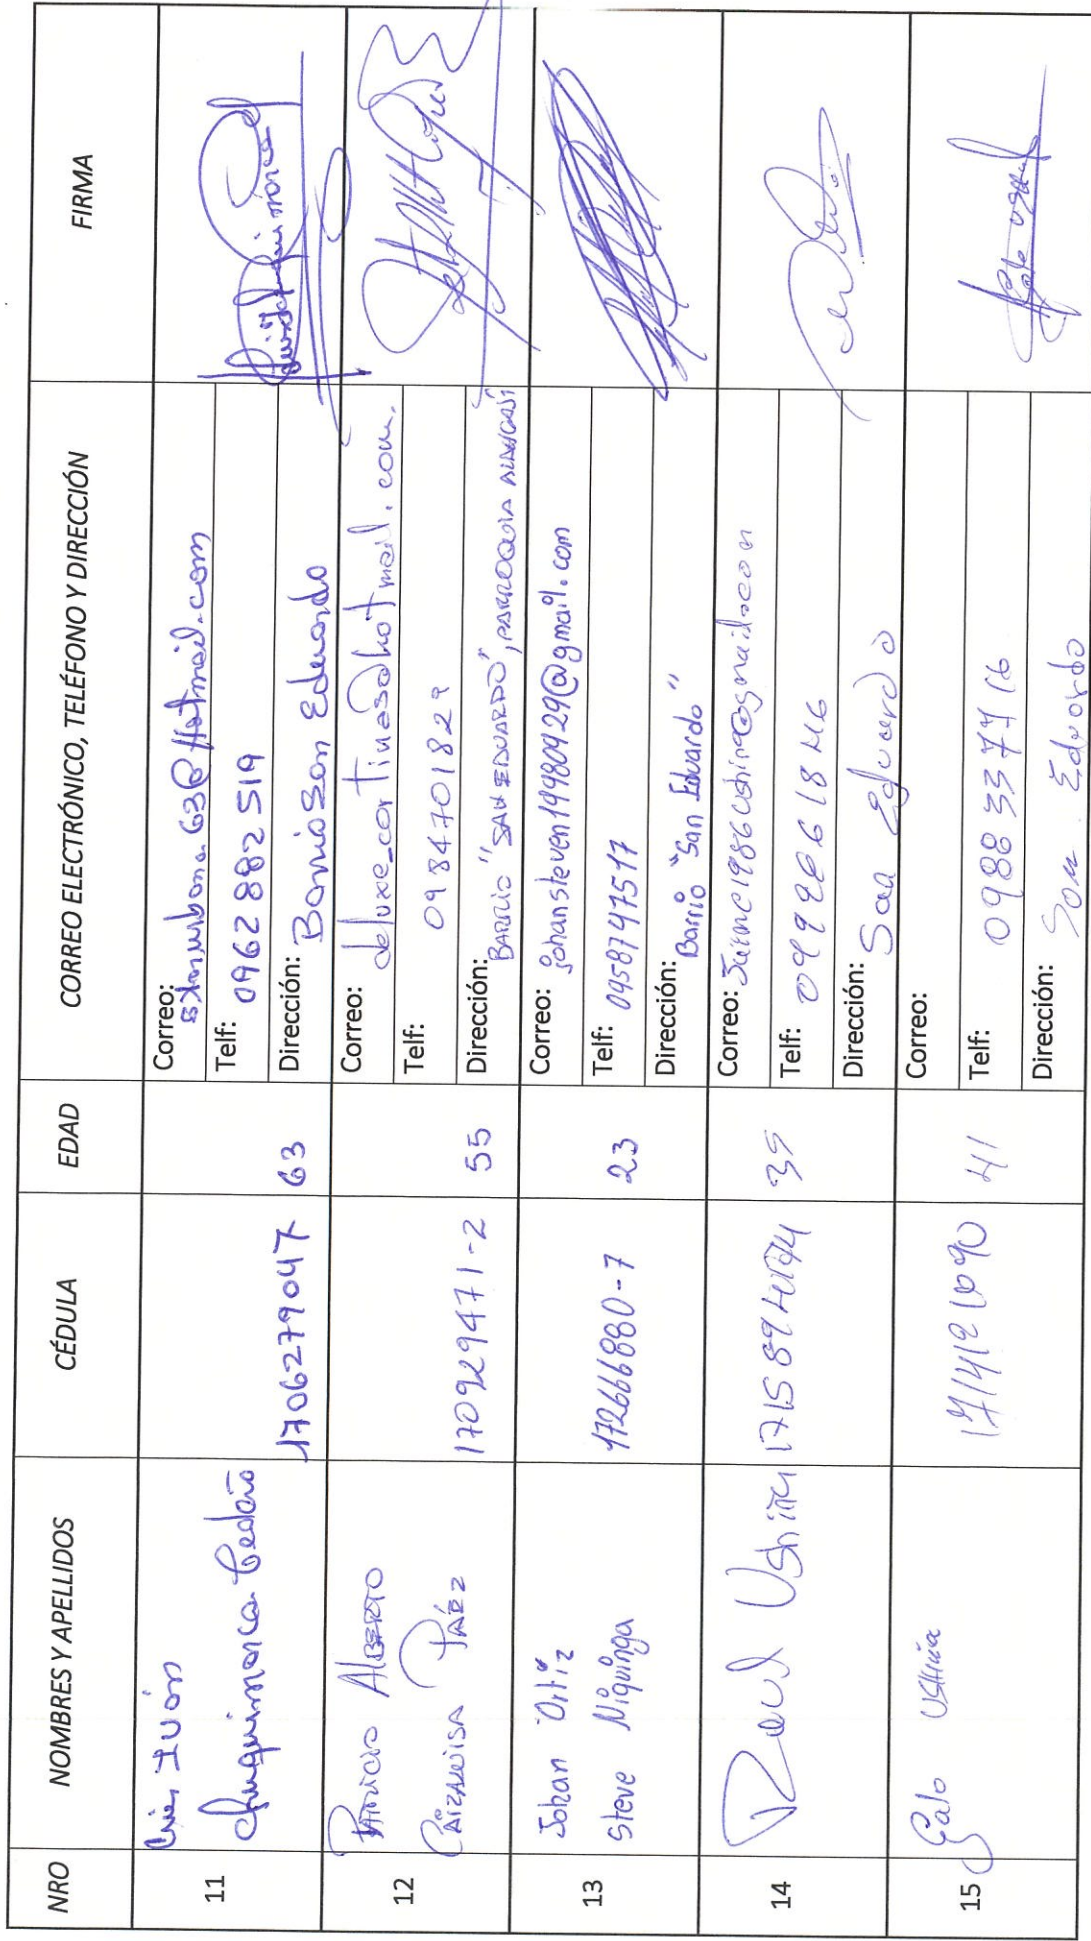 NRO NOMBRES Y APELLIDOS CÉDULA EDAD CORREO ELECTRÓNICO, TELÉFONO Y DIRECCIÓN FIRMA
11
Luis Iván
Chuquimarca Cedeño
1706279047 63
Correo: 63@Hotmail.com
Telf: 0962882519
Dirección: Barrio San Eduardo
12
Patricio Alberto
Caizaluisa Páez
170929471-2 55
Correo: deluxe_cortinas@hotmail.com.
Telf: 0984701829
Dirección: Barrio "SAN EDUARDO", PARROQUIA ALANGASÍ
13
Johan Ortiz
Steve Ñiquinga
172666880-7 23
Correo: johansteven19980929@gmail.com
Telf: 0958747517
Dirección: Barrio "San Eduardo"
14
Raul Ushiña
35
Correo:
Telf:
Dirección: San Eduardo
15
Galo Ushiña
41
Correo:
Telf: 0988337716
Dirección: San Eduardo